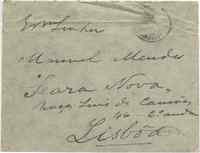 Exmo Senhor
Manuel Mendes
Seara Nova
Praça Luis de Camões
46 - 2º and.
Lisbôa